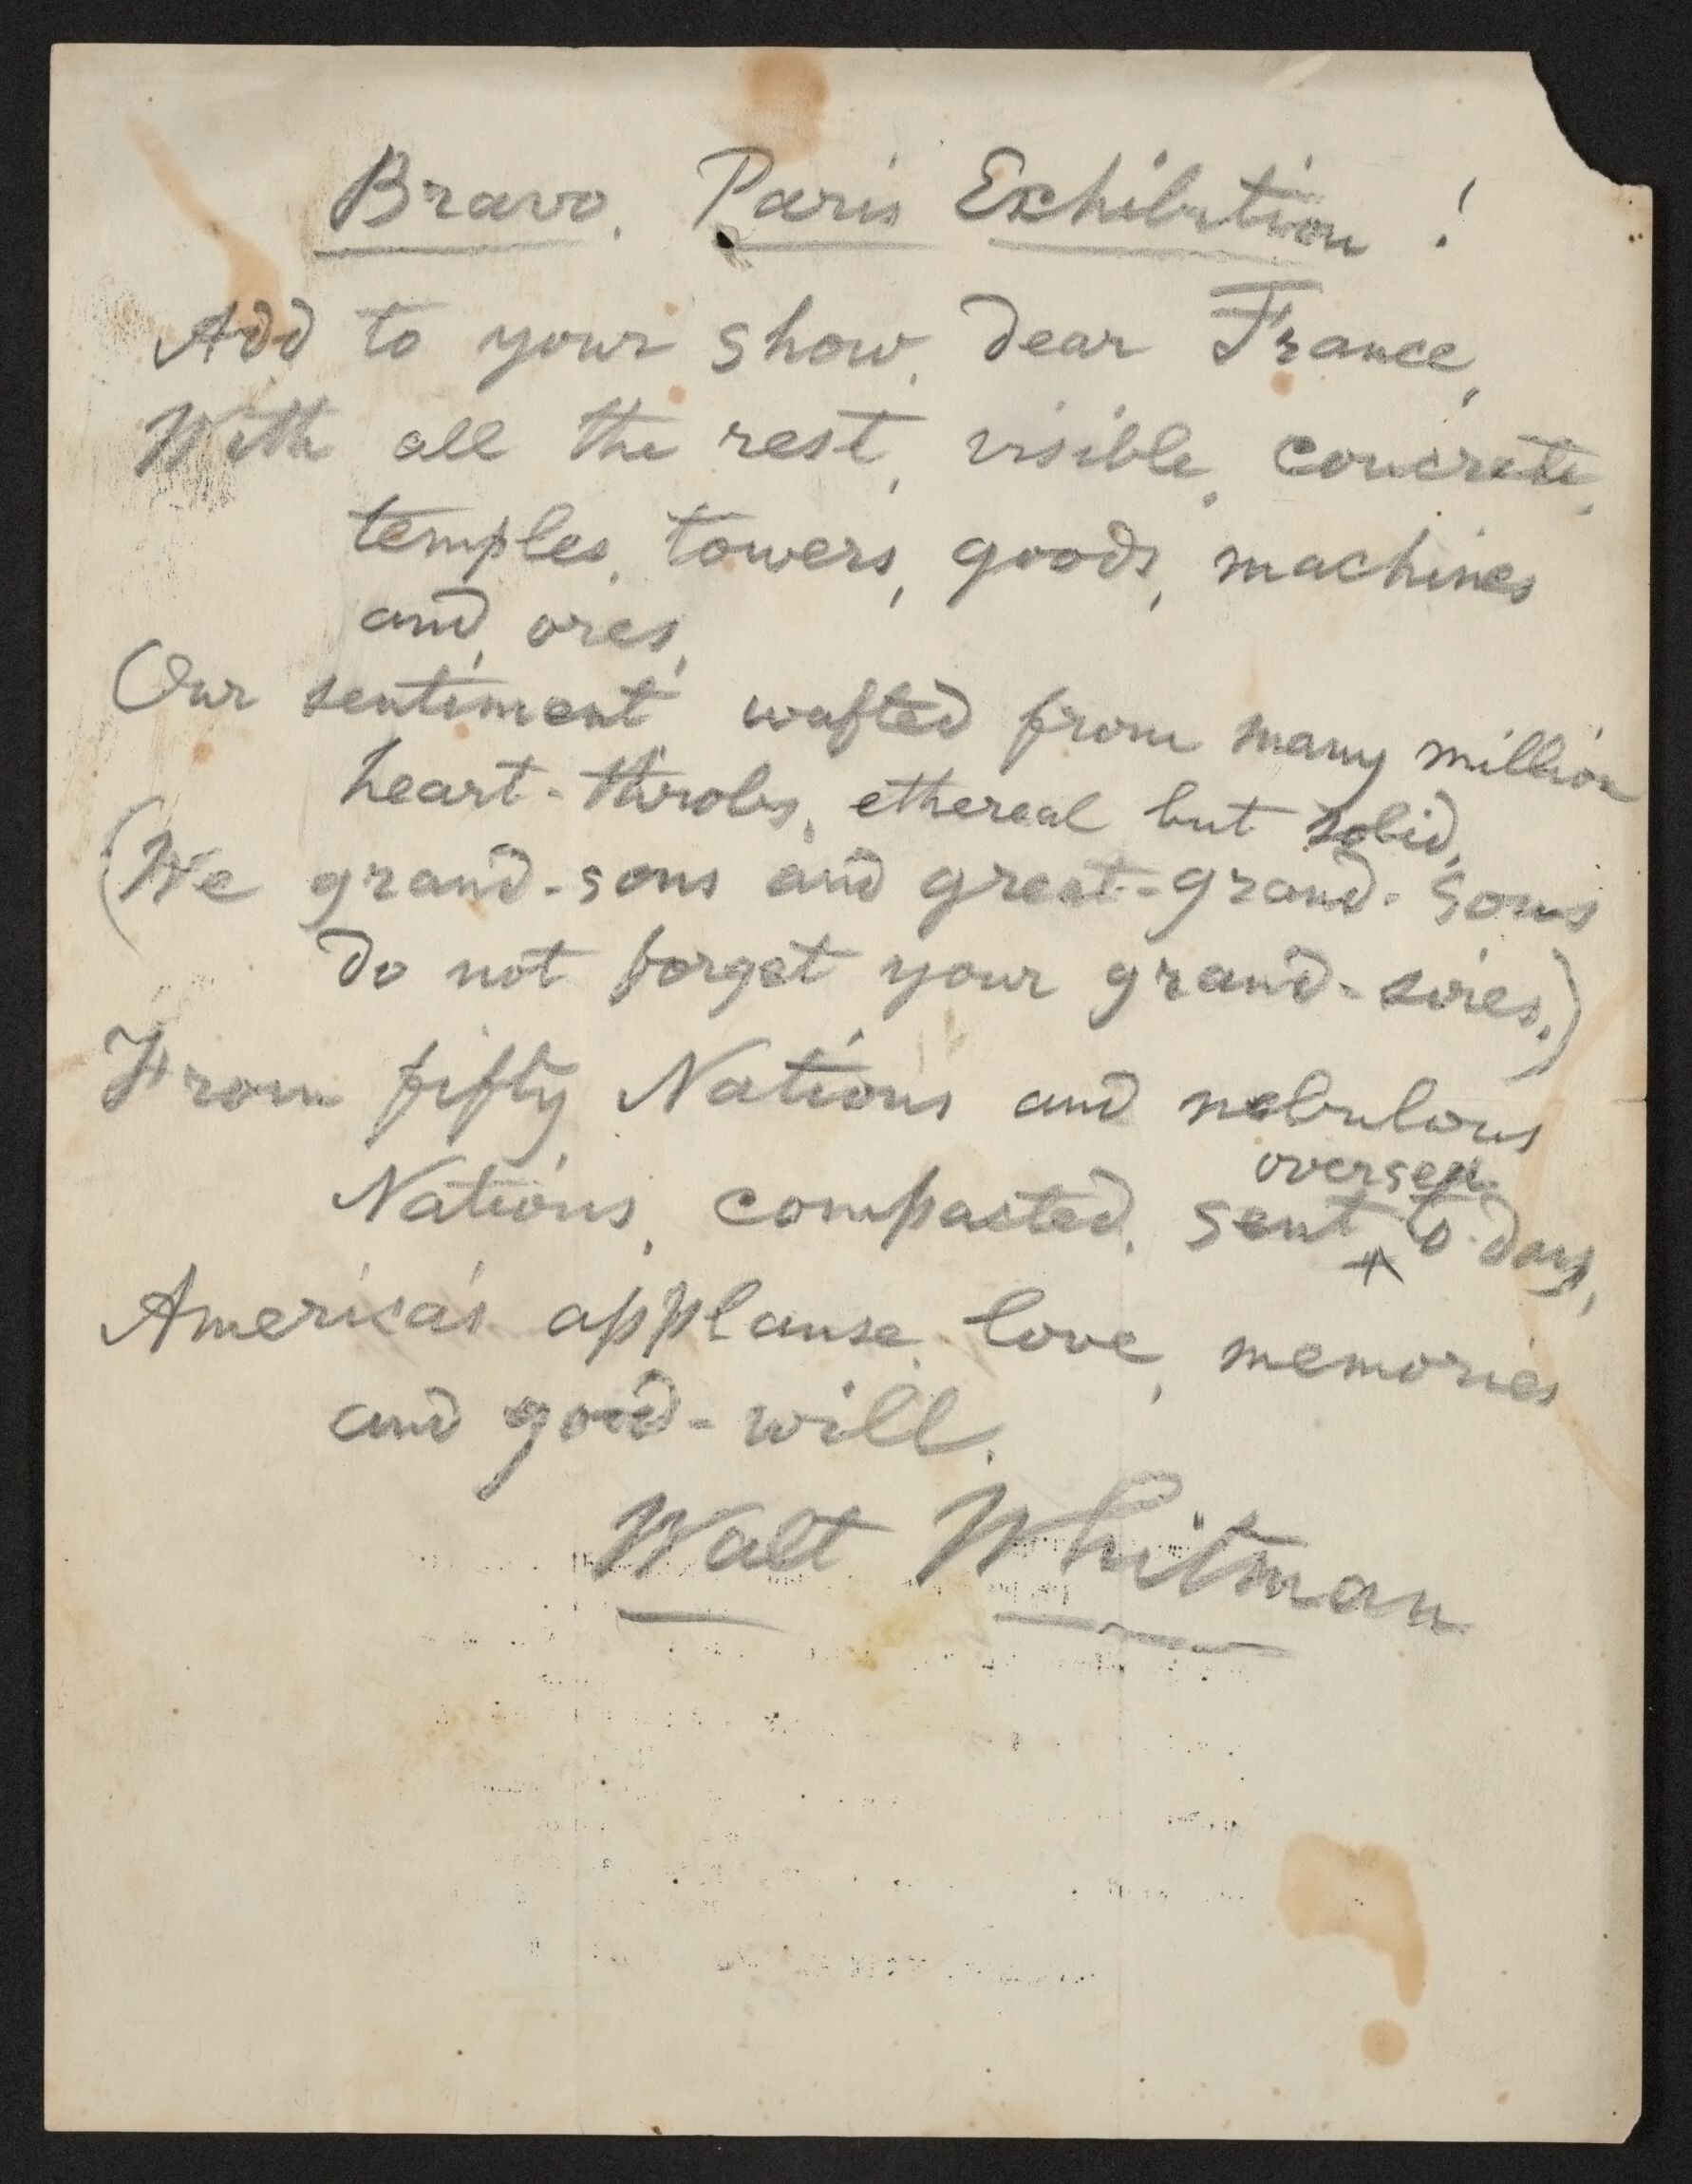 Bravo, Paris Exhibition!
Add to your show, dear France,
With all the rest, visible, concrete,
temples, towers, goods, machines
and ores,
Our sentiment wafted from many million
heart-throbs, ethereal but solid,
(We grand-sons and great-grand-sons
do not forget your grand-sires,)
From fifty Nations and nebulous
oversea
Nations, compacted, sent ^ to-day,
America's applause, love, memories
and good-will.
Walt Whitman